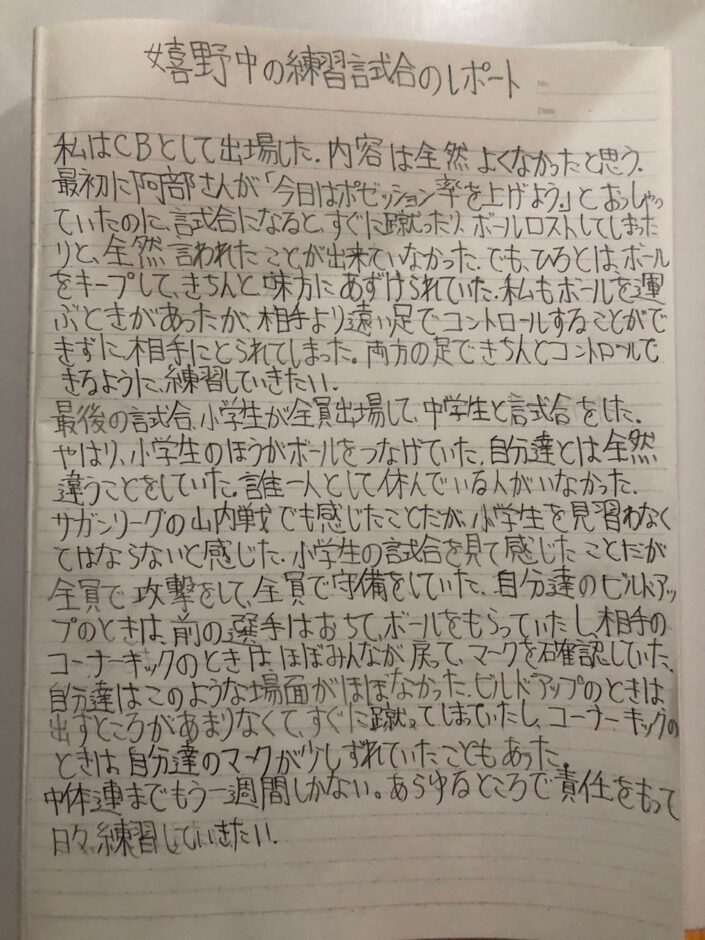 嬉野中の練習試合のレポート
No.
Date
私はCBとして出場した.内容は全然よくなかったと思う.
最初に阿部さんが「今日はポゼッション率を上げよう。」とおっしゃっ
ていたのに、試合になると、すぐに蹴ったり、ボールロストしてしまった
りと、全然言われたことが出来ていなかった.でも、ひろとは、ボール
をキープして、きちんと味方にあずけられていた.私もボールを運
ぶときがあったが、相手より遠い足でコントロールすることがで
きずに、相手にとられてしまった。両方の足できちんとコントロールで
きるように、練習していきたい.
最後の試合、小学生が全員出場して、中学生と試合をした.
やはり、小学生のほうがボールをつなげていた.自分達とは全然
違うことをしていた。誰一人として休んでいる人がいなかった.
サガンリーグの山内戦でも感じたことだが、小学生を見習わなく
てはならないと感じた.小学生の試合を見て感じたことだが
全員で攻撃をして、全員で守備をしていた.自分達のビルドアッ
プのときは、前の選手はおちて、ボールをもらっていたし、相手の
コーナーキックのときは、ほぼみんなが戻って、マークを確認していた.
自分達はこのような場面がほぼなかった.ビルドアップのときは、
出すところがあまりなくて、すぐに蹴ってしまっていたし、コーナーキックの
ときは、自分達のマークが少しずれていたこともあった.
中体連までもう一週間しかない。あらゆるところで責任をもって
日々、練習していきたい.